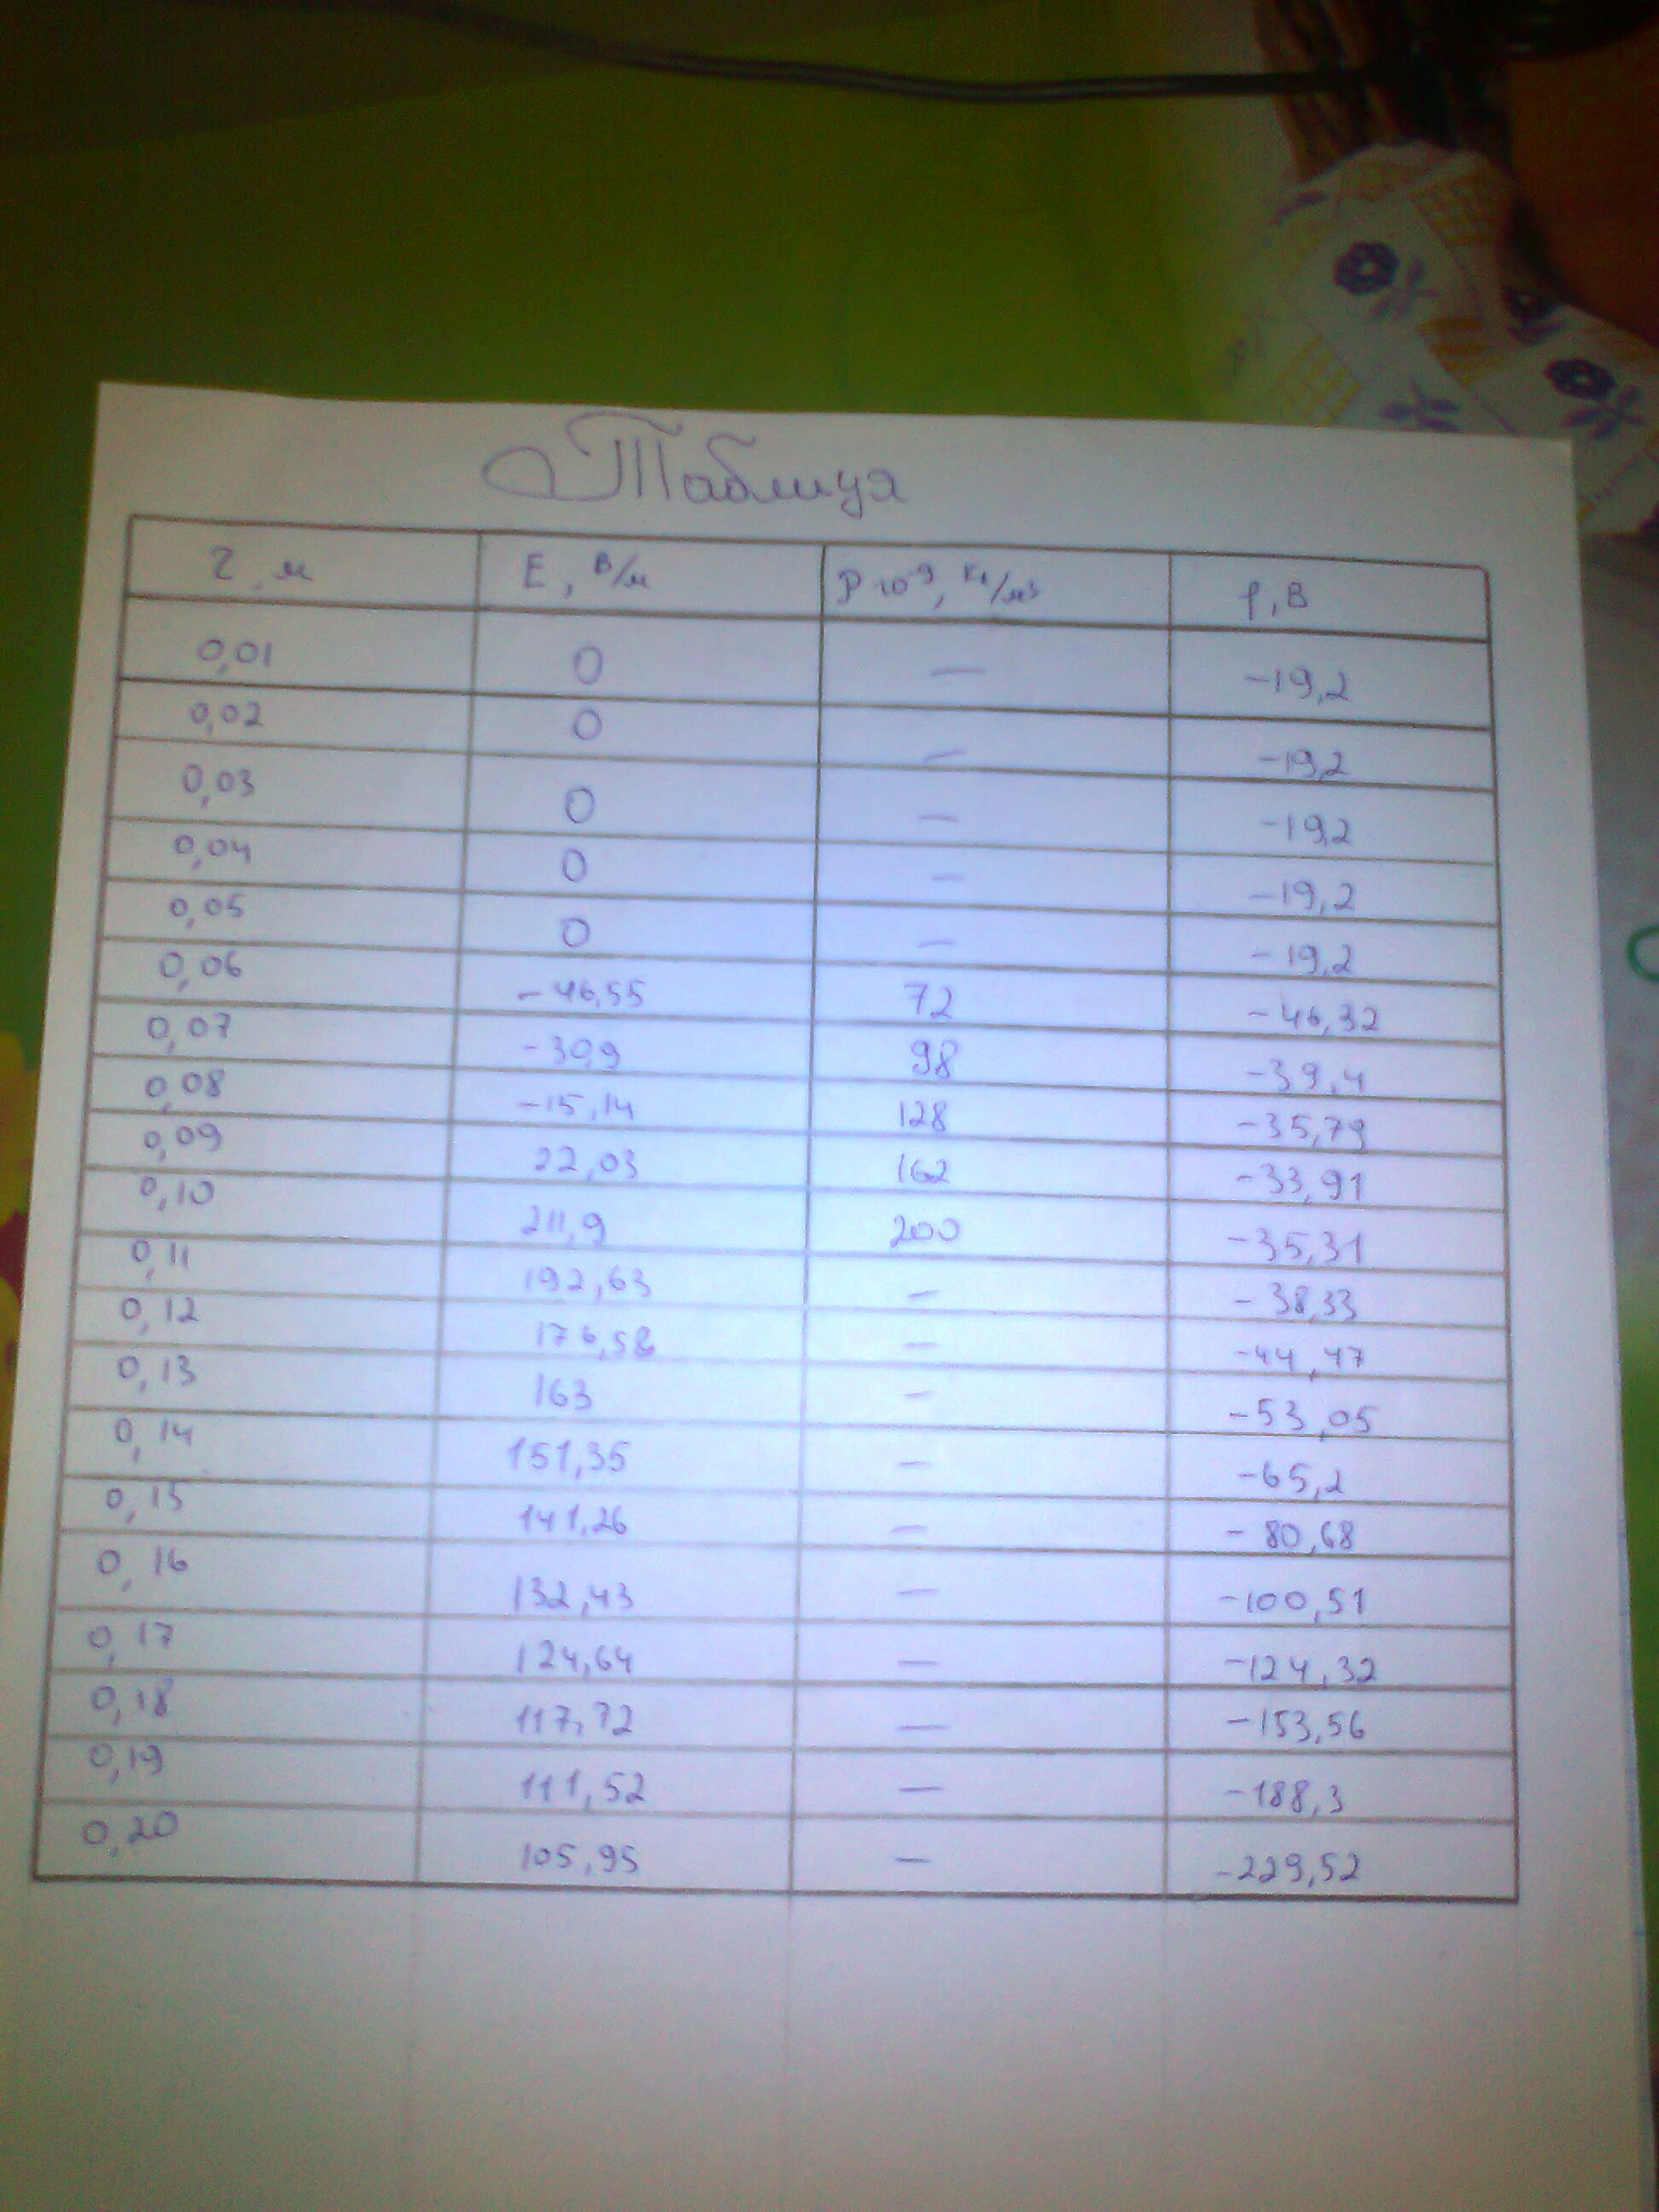 Таблица
r, м E, В/м ρ·10⁻⁹, Кл/м³ φ, В
0,01 0 — -19,2
0,02 0 — -19,2
0,03 0 — -19,2
0,04 0 — -19,2
0,05 0 — -19,2
0,06 -46,55 72 -46,32
0,07 -30,9 98 -39,4
0,08 -15,14 128 -35,79
0,09 22,03 162 -33,91
0,10 211,9 200 -35,31
0,11 192,63 — -38,33
0,12 176,58 — -44,47
0,13 163 — -53,05
0,14 151,35 — -65,2
0,15 141,26 — -80,68
0,16 132,43 — -100,51
0,17 124,64 — -124,32
0,18 117,72 — -153,56
0,19 111,52 — -188,3
0,20 105,95 — -229,52